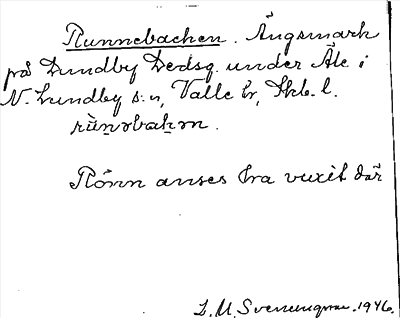 Runnebacken. Ängsmark
på Lundby Dedsg. under Åle i
N. Lundby s:n, Valle hd, Skb. l.
rùnəbakən.
Rönn anses ha vuxit där
L. M. Svenungsson. 1946.